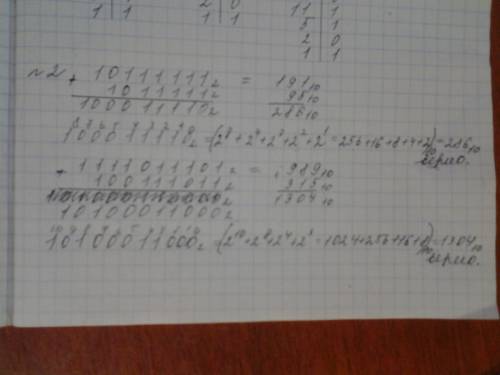 1 | 1 2 | 0 11 | 1
1 | 1 5 | 1
2 | 0
1 | 1
№2 + 10111111₂ = 191₁₀
1011111₂ 95₁₀
100011110₂ 286₁₀
100011110₂ = (2⁸ + 2⁴ + 2³ + 2² + 2¹ = 256+16+8+4+2)₁₀ = 286₁₀
верно.
+ 1111011101₂ = 989₁₀
100111011₂ 315₁₀
1304₁₀
10100011000₂
10100011000₂ = (2¹⁰ + 2⁸ + 2⁴ + 2³ = 1024+256+16+8)₁₀ = 1304₁₀
верно.